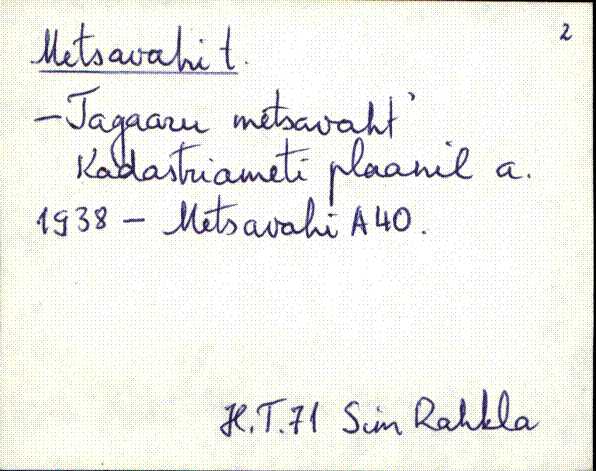 2
Metsavahi t.
– Tagaaru metsavaht'
Kadastriameti plaanil a.
1938 – Metsavahi A40.
H.T.71 Sim Rahkla